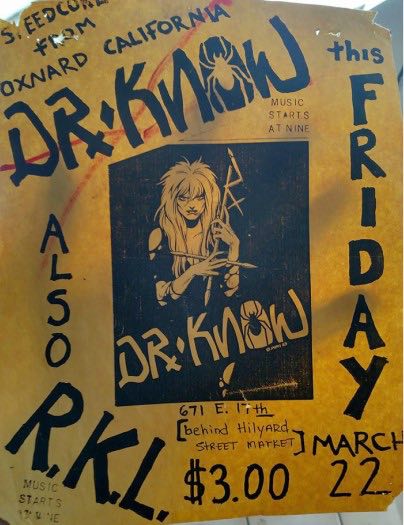 SPEEDCORE
FROM
OXNARD CALIFORNIA
DR. KNOW
MUSIC
STARTS
AT NINE
this
FRIDAY
MARCH
22
DR. KNOW
ALSO
R.K.L.
MUSIC
STARTS
671 E. 17th
[behind Hilyard
STREET MARKET]
$3.00